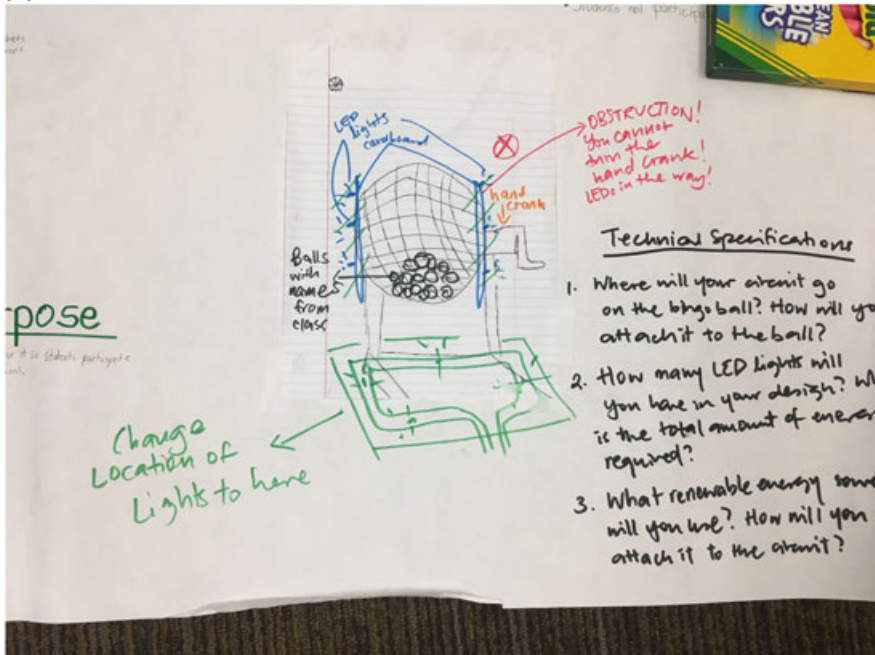 students not participa
LED
lights
cardboard
OBSTRUCTION!
You cannot
turn the
hand crank!
LEDs in the way!
hand
crank
Balls
with
names
from
class
pose
it so students participate
Change
Location of
Lights to here
Technical Specifications
1. Where will your circuit go
on the bingo ball? How will yo
attach it to the ball?
2. How many LED lights will
you have in your design? Wh
is the total amount of energ
required?
3. What renewable energy sour
will you use? How will you
attach it to the circuit?